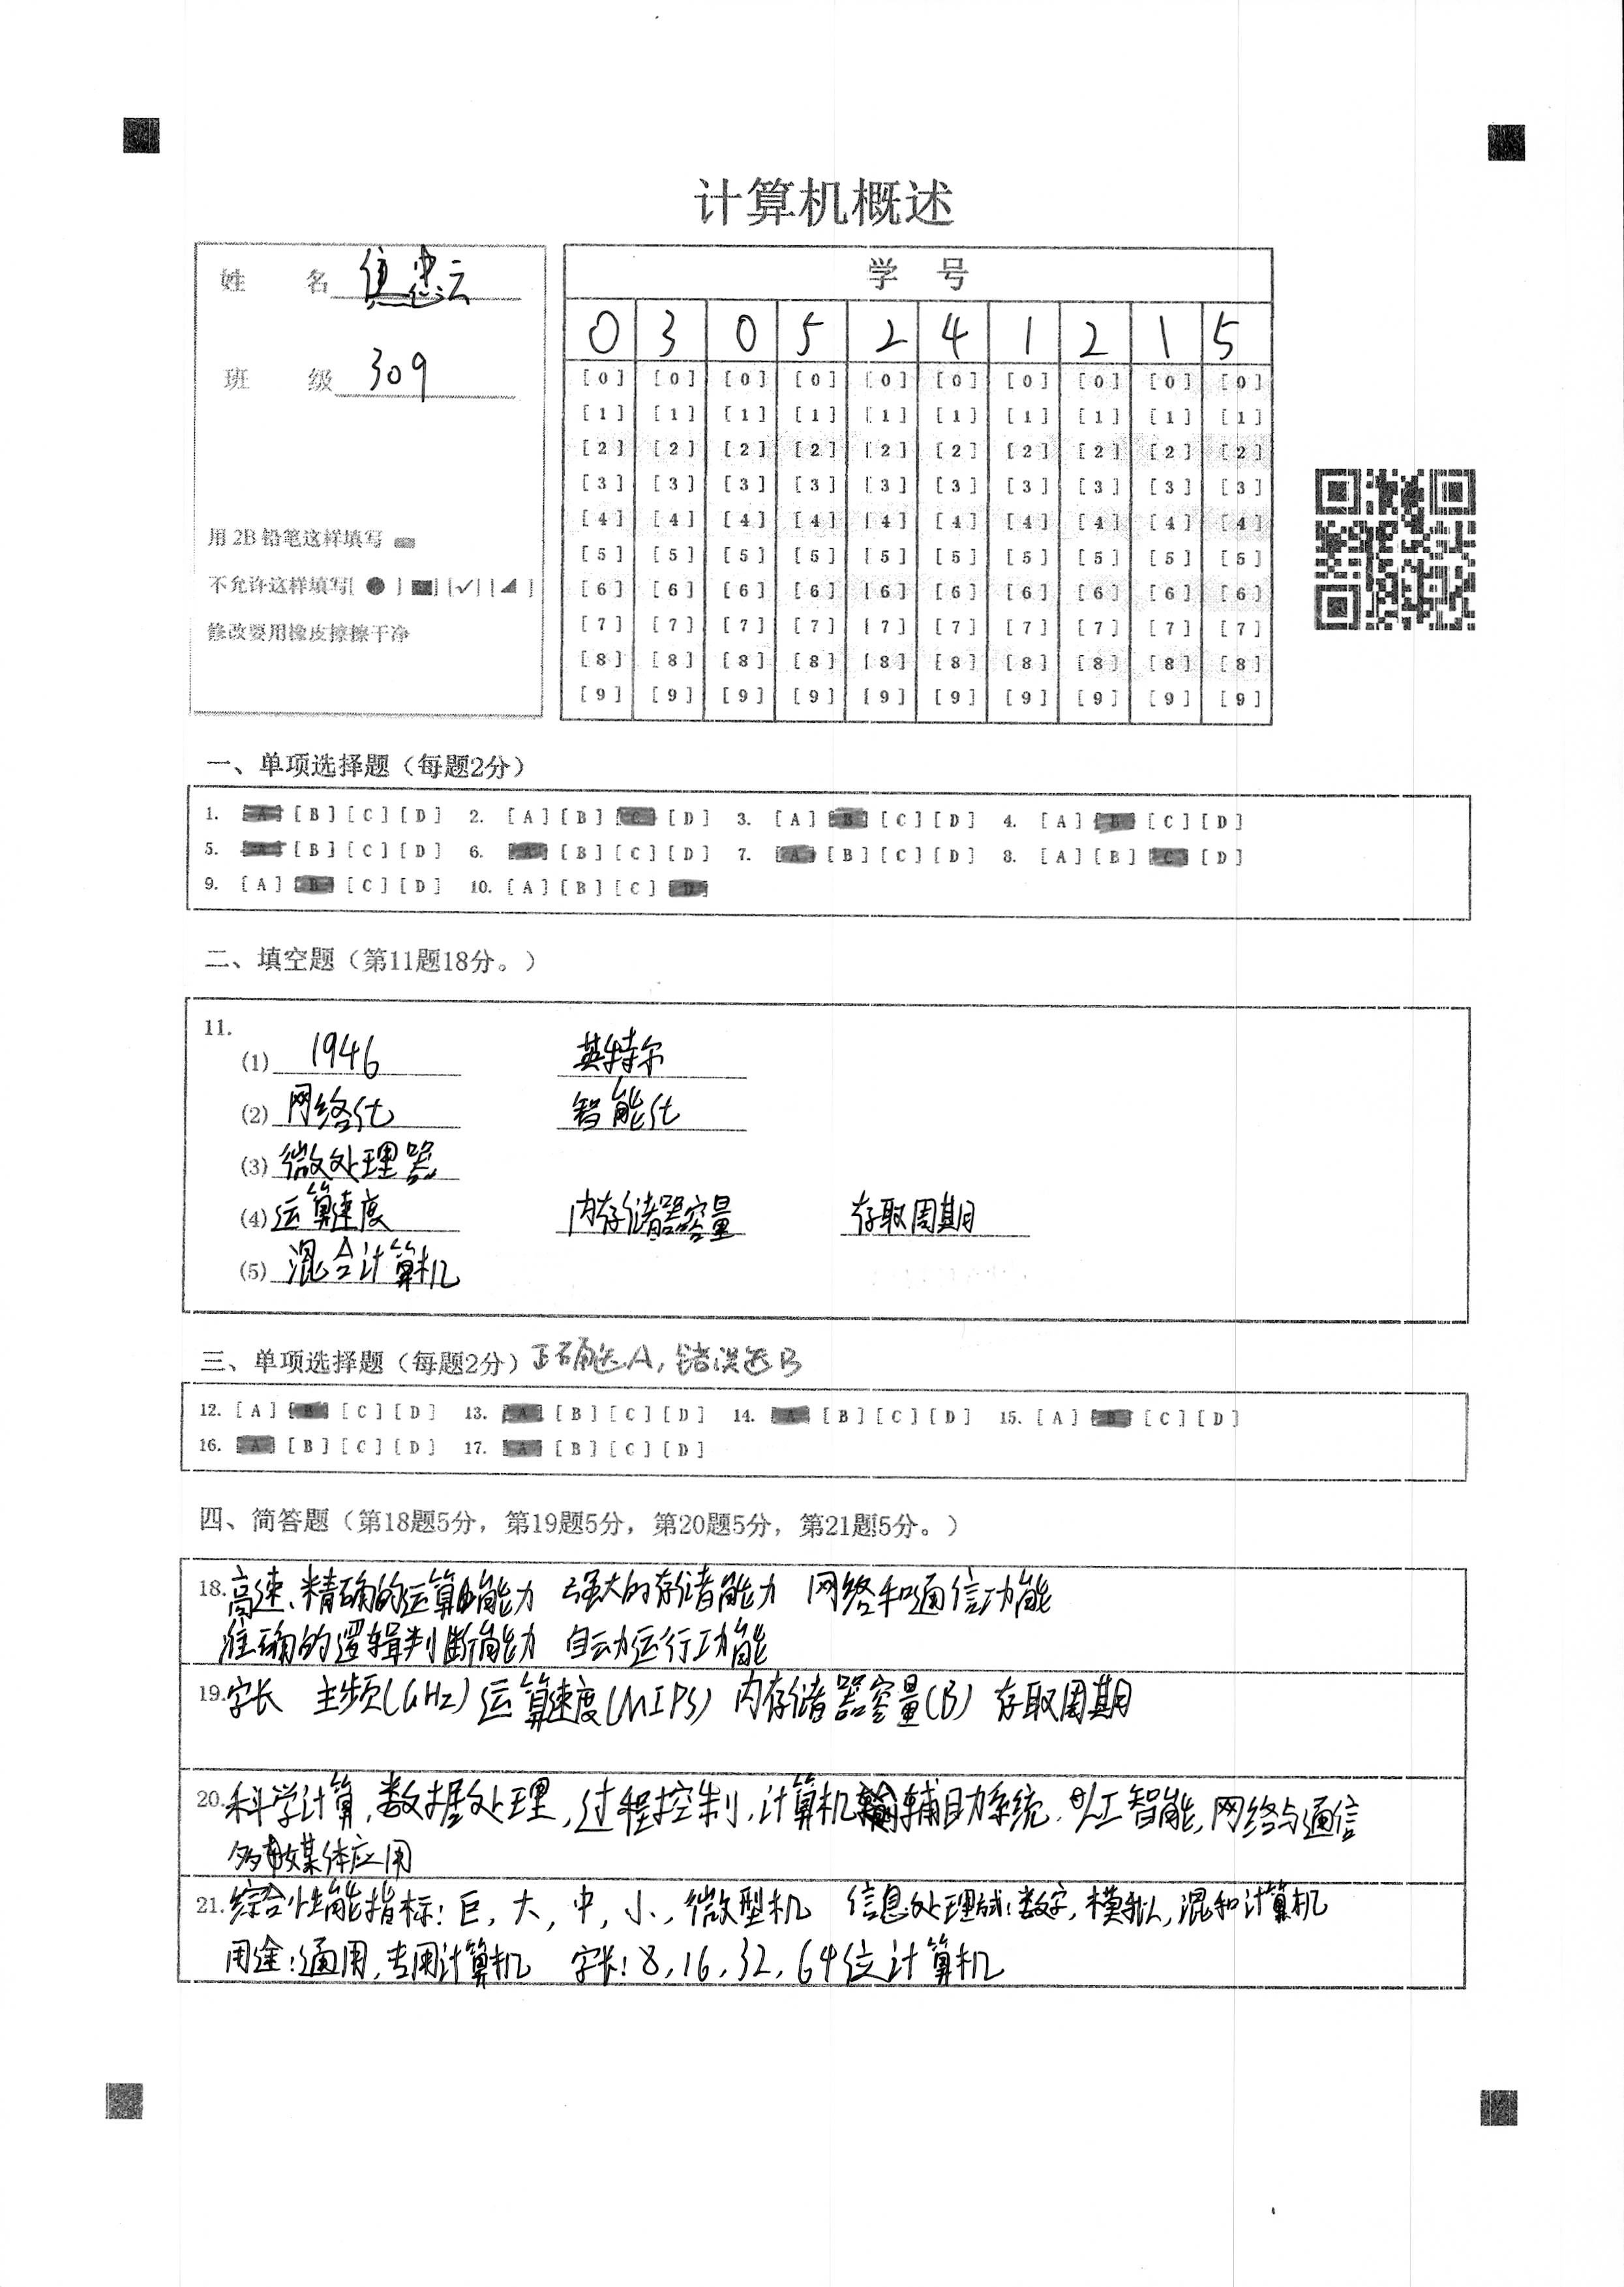 计算机概述
姓 名
班 级 309
用 2B 铅笔这样填写
不允许这样填写[ ● ] [■] [✓] [◢ ]
修改要用橡皮擦擦干净
学 号
0 3 0 5 2 4 1 2 1 5
[0] [0] [0] [0] [0] [0] [0] [0] [0] [0]
[1] [1] [1] [1] [1] [1] [1] [1] [1] [1]
[2] [2] [2] [2] [2] [2] [2] [2] [2] [2]
[3] [3] [3] [3] [3] [3] [3] [3] [3] [3]
[4] [4] [4] [4] [4] [4] [4] [4] [4] [4]
[5] [5] [5] [5] [5] [5] [5] [5] [5] [5]
[6] [6] [6] [6] [6] [6] [6] [6] [6] [6]
[7] [7] [7] [7] [7] [7] [7] [7] [7] [7]
[8] [8] [8] [8] [8] [8] [8] [8] [8] [8]
[9] [9] [9] [9] [9] [9] [9] [9] [9] [9]
一、单项选择题（每题2分）
1. [A] [B] [C] [D] 2. [A] [B] [C] [D] 3. [A] [B] [C] [D] 4. [A] [B] [C] [D]
5. [A] [B] [C] [D] 6. [A] [B] [C] [D] 7. [A] [B] [C] [D] 8. [A] [B] [C] [D]
9. [A] [B] [C] [D] 10. [A] [B] [C] [D]
二、填空题（第11题18分。）
11.
(1) 1946 英特尔
(2) 网络化 智能化
(3) 微处理器
(4) 运算速度 内存储器容量 存取周期
(5) 混合计算机
三、单项选择题（每题2分）正确选A，错误选B
12. [A] [B] [C] [D] 13. [A] [B] [C] [D] 14. [A] [B] [C] [D] 15. [A] [B] [C] [D]
16. [A] [B] [C] [D] 17. [A] [B] [C] [D]
四、简答题（第18题5分，第19题5分，第20题5分，第21题5分。）
18. 高速、精确的运算能力 强大的存储能力 网络和通信功能
准确的逻辑判断能力 自动运行功能
19. 字长 主频(GHz) 运算速度(MIPS) 内存储器容量(B) 存取周期
20. 科学计算，数据处理，过程控制，计算机辅助系统，人工智能，网络与通信
多媒体应用
21. 综合性能指标：巨，大，中，小，微型机 信息处理方式：数字，模拟，混和计算机
用途：通用，专用计算机 字长：8，16，32，64位计算机